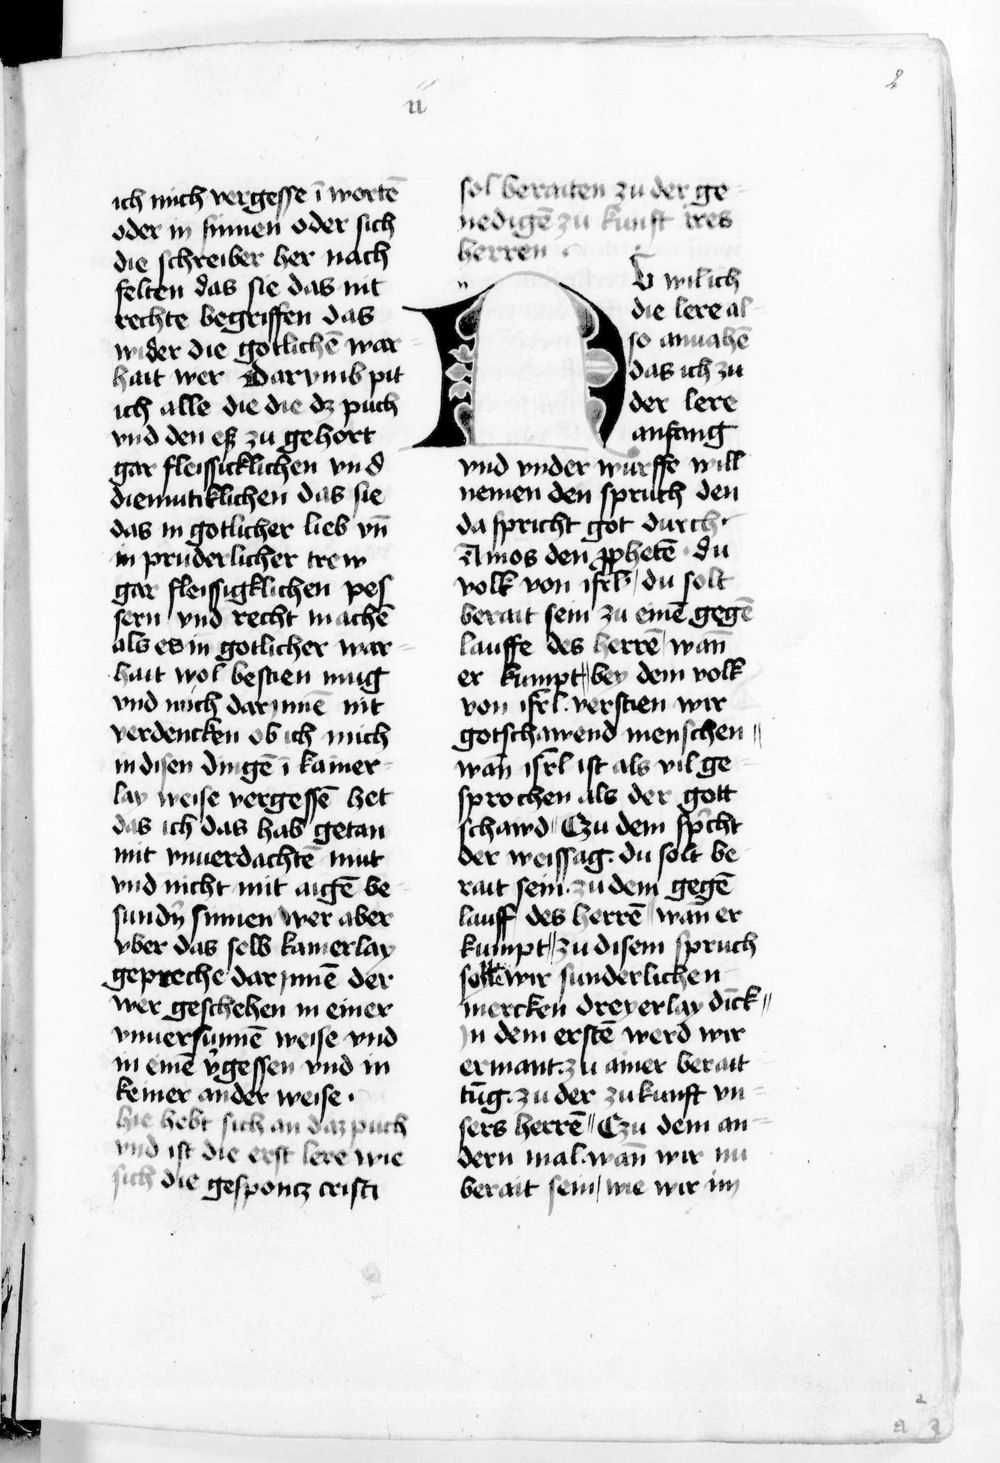 ii
2
ich mich vergesse ī wortē
oder in sinnen oder sich
die schreiber her nach
felten das sie das nit
rechte begriffen das
wider die gotlichē war-
hait wer Darvmb pit
ich alle die die dz puch
vnd den eß zu gehort
gar fleissicklichen vnd
diemutiklichen das sie
das in gotlicher lieb vn̄
in pruderlicher trew
gar fleissigklichen pes
sern vnd recht machē
als es in gotlicher war-
hait wol bestien mug
vnd mich darynnē nit
verdencken ob ich mich
in disen dingē ī kainer-
lay weise vergessē het
das ich das hab getan
mit vnuerdachtē mut
vnd nicht mit aigē be-
sundn̄ sinnen wer aber
vber das selb kainerlay
gepreche darynnē der
wer geschehen in einer
vnuersunnē weise vnd
in einē v̄gessen vnd in
keiner ander weise.
hie hebt sich an daz puch
vnd ist die erst lere wie
sich die gespontz cristi
sol beraiten zu der ge-
nedigē zu kunft ires
herren.
NV wil ich
die lere al-
so anuahē
das ich zu
der lere
anfang
vnd vnder wurffe will
nemen den spruch den
da spricht got durch.
Amos den ꝓphetē. du
volk von isrl̄ / du solt
berait sein zu einē gegē
lauffe des herrē / wan̄
er kumpt // bey dem volk
von isrl̄. verstien wir
gotschawend menschen //
wan̄ isrl̄ ist als vil ge-
sprochen als der gott
schawd // Czu dem sp̄cht
der weissag. du solt be
rait sein. zu dem gegē
lauff des herrē // wan̄ er
kumpt // zu disem spruch
sollē wir sunderlichen
mercken dreyerlay dīck //
In dem erstē werd wir
ermant. zu ainer berait
tūg. zu der zukunft vn-
sers herrē // Czu dem an-
dern mal. wan̄ wir nu
berait sein / wie wir im
a 2